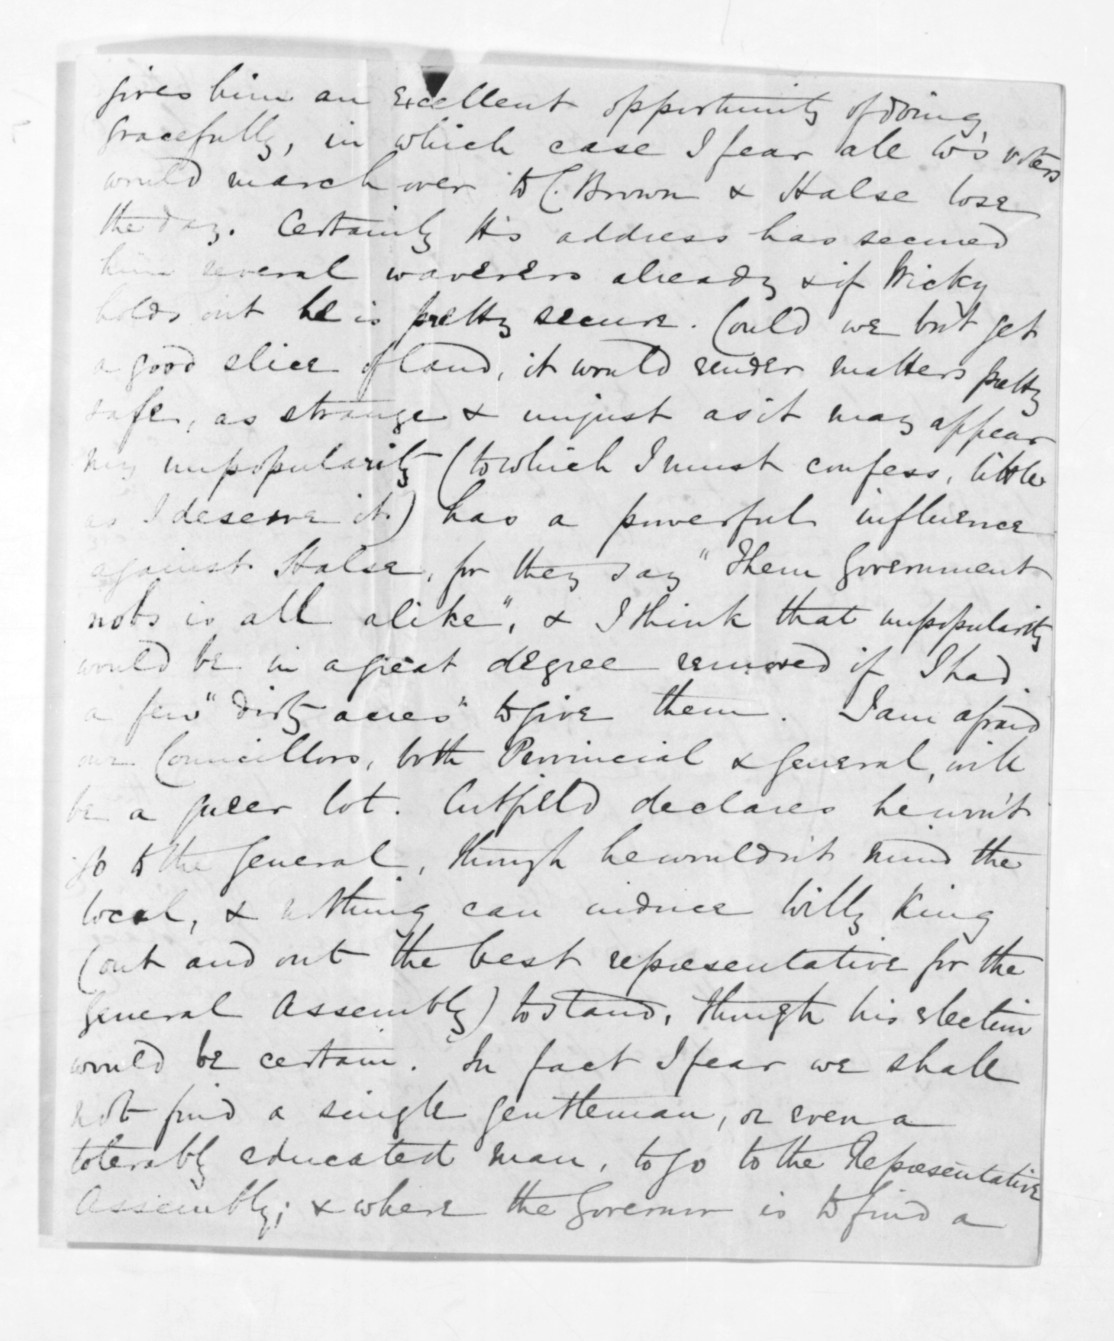 gives him an excellent opportunity of doing,
gracefully, in which case I fear all W's voters
would march over to C. Brown & Halse lose
the day. Certainly H's address has secured
him several waverers already & if Wicky
holds out he is pretty secure. Could we but get
a good slice of land, it would render matters pretty
safe, as strange & unjust as it may appear
my unpopularity (to which I must confess, little
as I deserve it) has a powerful influence
against Halse, for they say "Them Government
nobs is all alike", & I think that unpopularity
would be in a great degree removed if I had
a few "dirty acres" to give them. I am afraid
our Councillors, both Provincial & General, will
be a queer lot. Cutfield declares he won't
go to the General, though he wouldn't mind the
local, & nothing can induce Willy King
(out and out the best representative for the
General Assembly) to stand, though his election
would be certain. In fact I fear we shall
not find a single gentleman, or even a
tolerably educated man, to go to the Representative
Assembly; & where the Governor is to find a